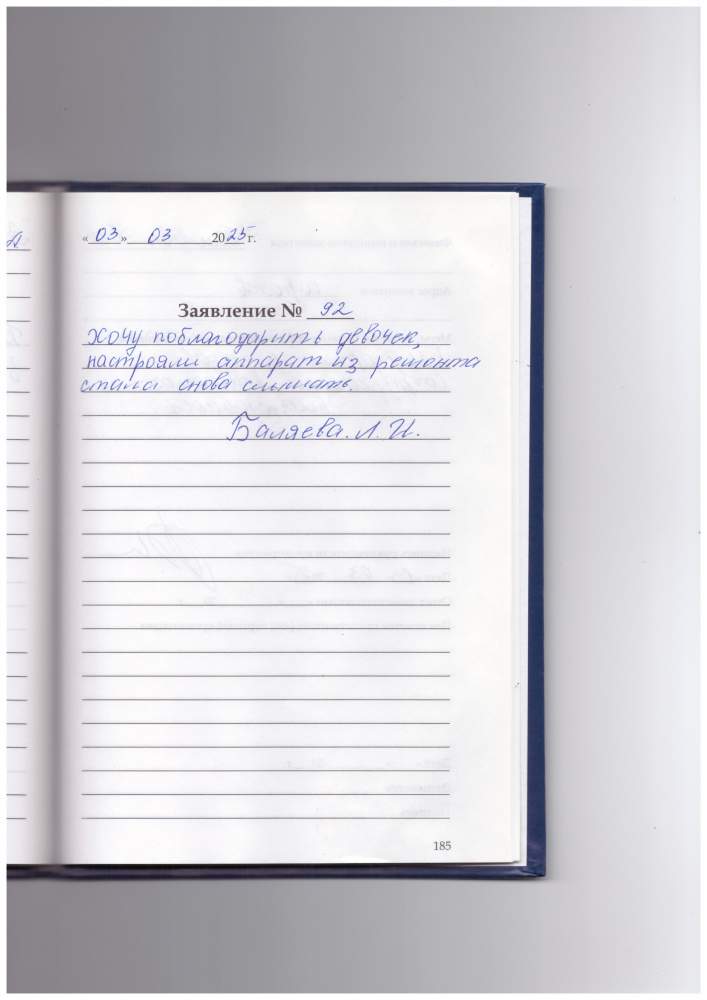 «03» 03 2025 г.
Заявление № 92
Хочу поблагодарить девочек,
настрояли аппарат из ремонта
стала снова слышать.
Баляева. Л. И.
185